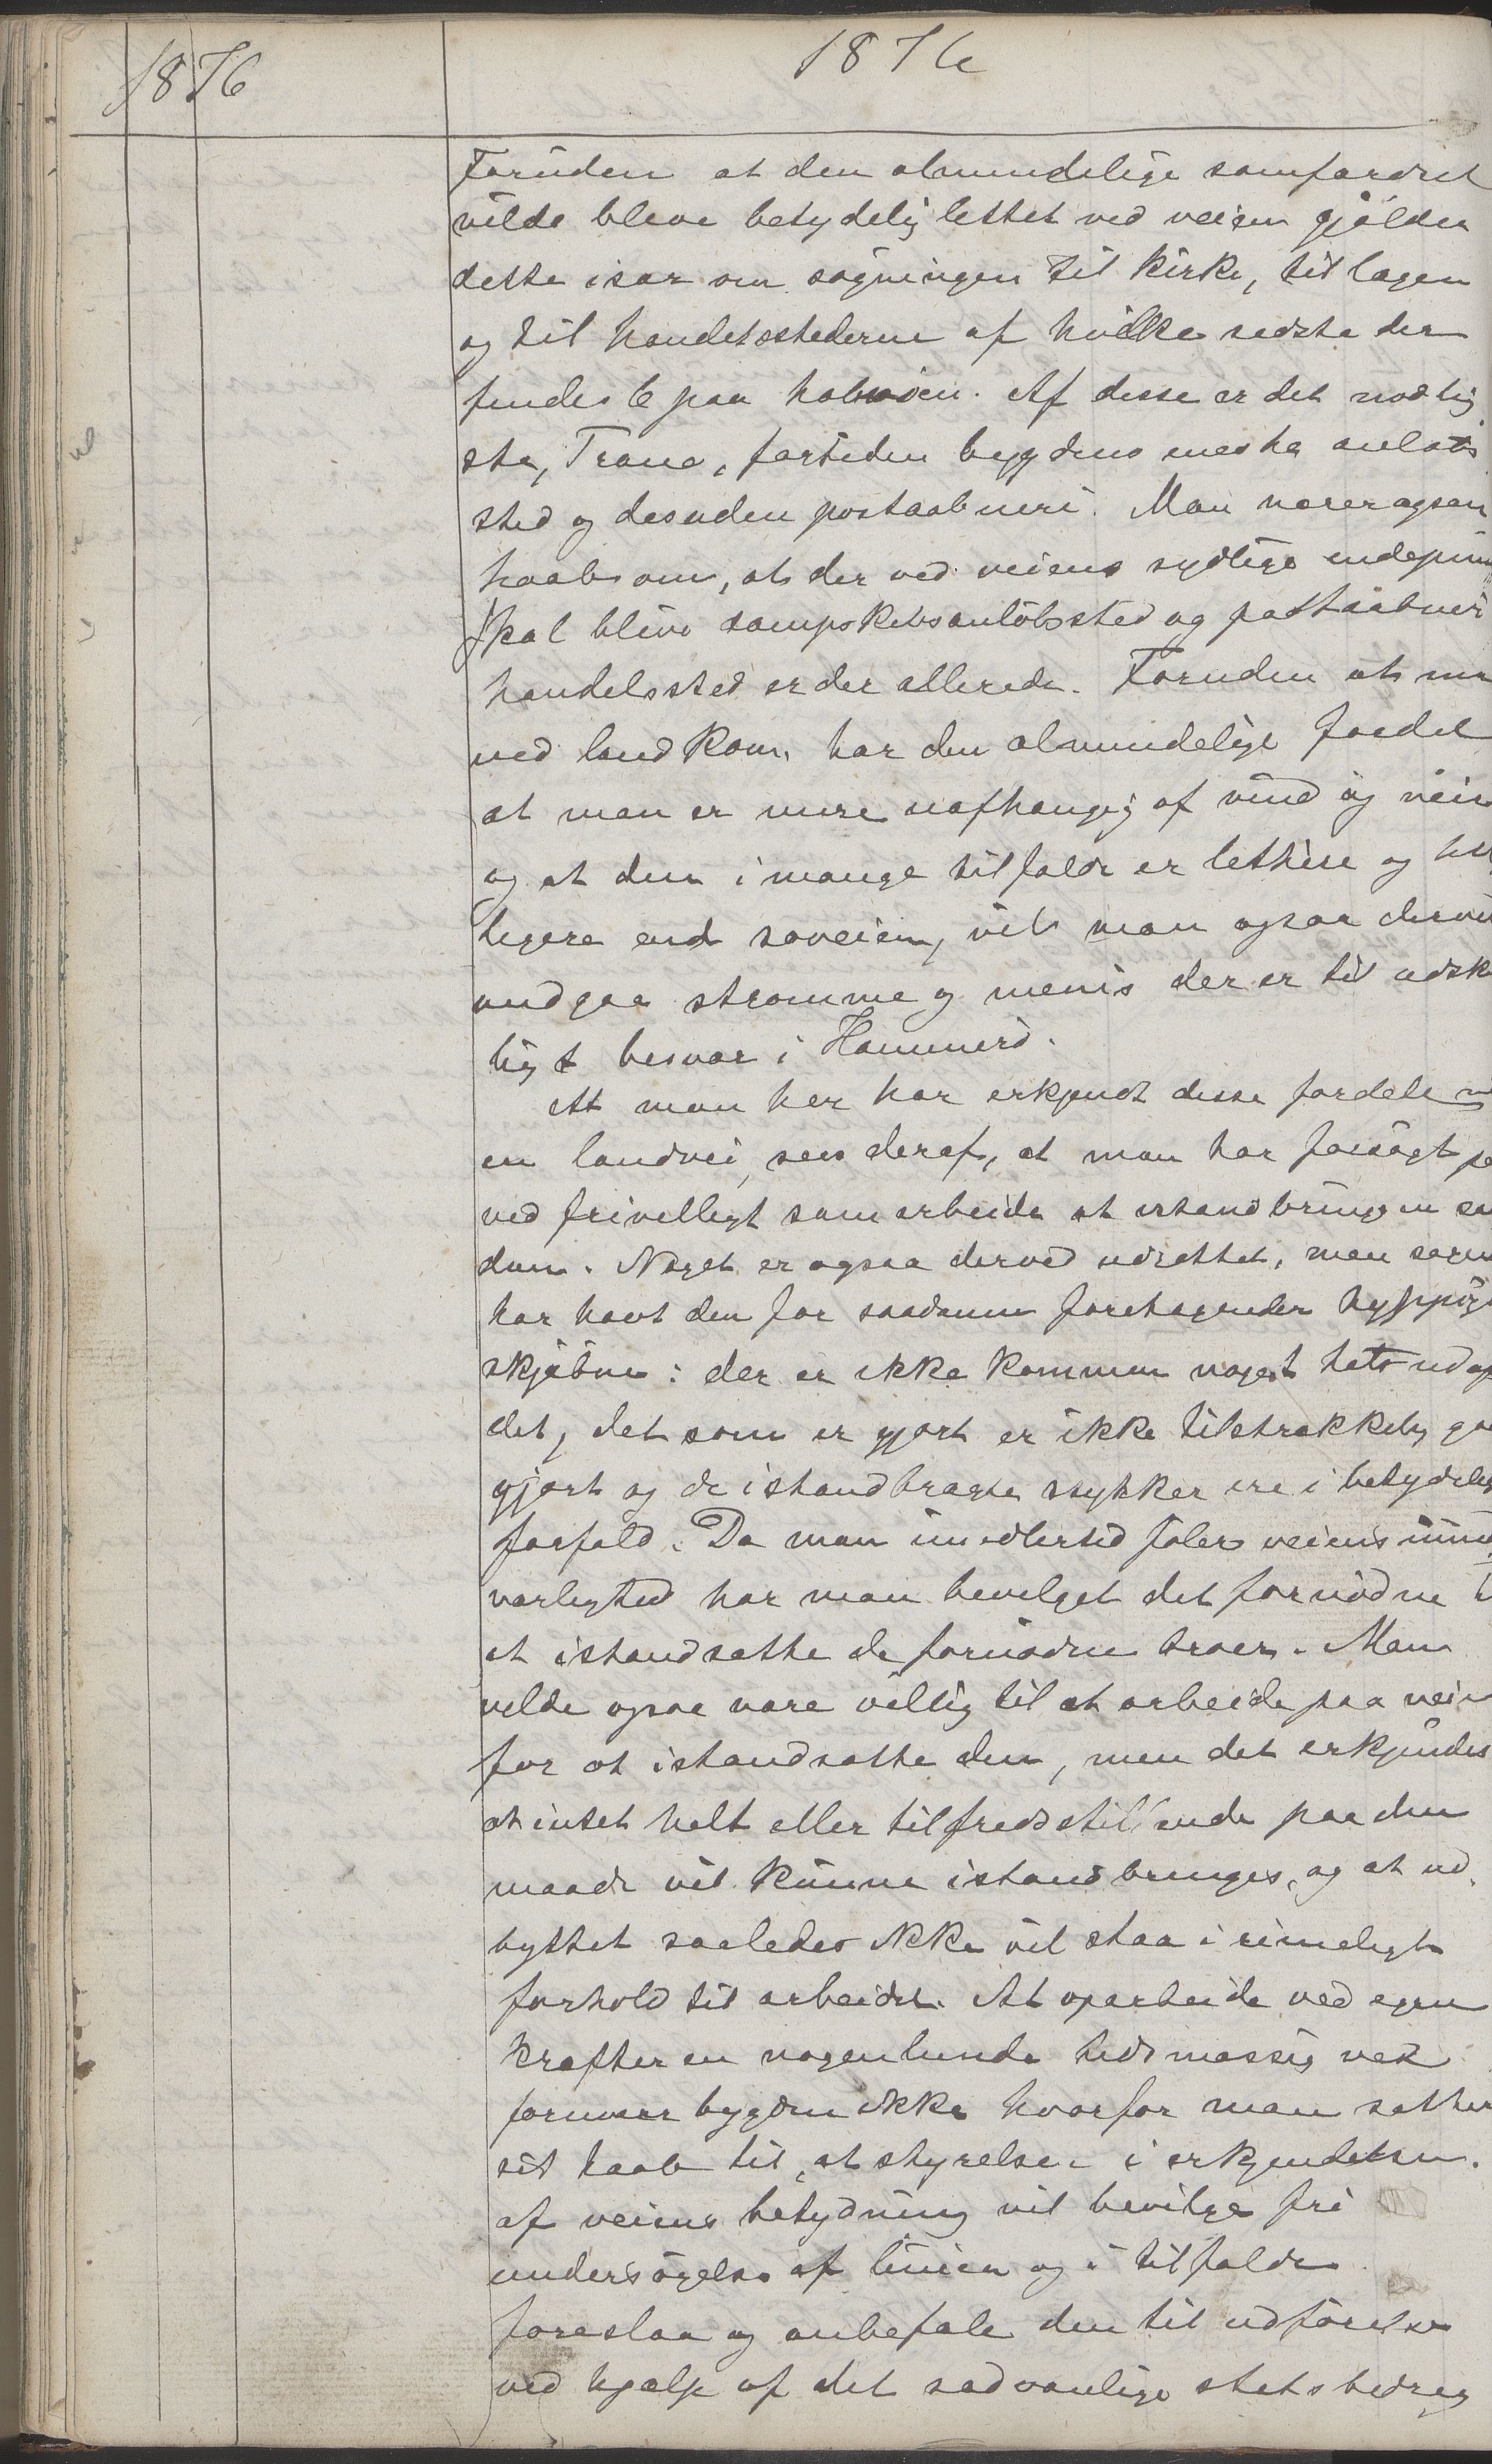 1876
1876
Foruden at den almindelige samfærdsel
vilde bleve betydelig lettet ved veien gjælder
dette især om søgningen til kirke, til lægen
og til handelsstederne af hvilke sidste der
findes 6 paa halvøen. Af disse er det nordlig
ste, Tranø, fortiden bygdens meste anløbs
sted og desuden postaabneri. Man nærer ogsaa
haab om, at der ved veiens sydlige endepun
skal blive dampskibsanløbssted og postaabneri
handelssted er der allerede. Foruden at man
ved landkom. har den almindelige fordel
at man er mere uafhængig af vind og veir
og at den i mange tilfælde er lettere og hur
tigere end søveien, vil man ogsaa derved
undgaa strømme og menis der er til udsk
ligt besvær i Hammerø.
At man her har erkjendt disse fordele ved
en landvei, sees deraf, at man har forsøgt paa
ved frivilligt samarbeide at istandbringe en saa
dan. Noget er ogsaa derved udrettet, men sagen
har havt den for saadanne foretagender hyppige
skjæbne: der er ikke kommen noget helt ud af
det, det som er gjort er ikke tilstrækkelig godt
gjort og de istandbragte stykker ere i betydelig
forfald. Da man imidlertid føler veiens
varlighed har man bevilget det fornødne t
at istandsætte de fornødne broer. Man
vilde ogsaa være villig til at arbeide paa veien
for at istandsætte den, men det erkjendes
at intet helt eller tilfredsstillende paa den
maade vil kunne istandbringes, og at ud
byttet saaledes ikke vil staa i rimeligt
forhold til arbeidet. At oparbeide ved egne
kræfter en nogenlunde tidsmæssig vei
formaar bygden ikke hvorfor man sætter
sit haab til, at styrelsen i erkjendelsen
af veiens betydning vil bevilge fri
undersøgelse af linien og i tilfælde
foreslaa og anbefale den til udførelse
ved hjælp af det sædvanlige statsbidrag